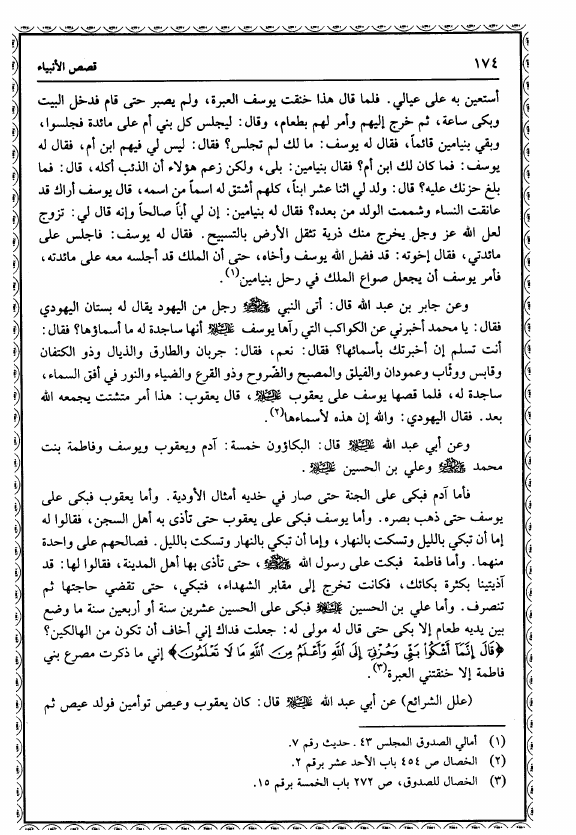 ١٧٤
قصص الأنبياء
أستعين به على عيالي. فلما قال هذا خنقت يوسف العبرة، ولم يصبر حتى قام فدخل البيت
وبكى ساعة، ثم خرج إليهم وأمر لهم بطعام، وقال: ليجلس كل بني أم على مائدة فجلسوا،
وبقي بنيامين قائماً، فقال له يوسف: ما لك لم تجلس؟ فقال: ليس لي فيهم ابن أم، فقال له
يوسف: فما كان لك ابن أم؟ فقال بنيامين: بلى، ولكن زعم هؤلاء أن الذئب أكله، قال: فما
بلغ حزنك عليه؟ قال: ولد لي اثنا عشر ابناً، كلهم أشتق له اسماً من اسمه، قال يوسف أراك قد
عانقت النساء وشممت الولد من بعده؟ فقال له بنيامين: إن لي أباً صالحاً وإنه قال لي: تزوج
لعل الله عز وجل يخرج منك ذرية تثقل الأرض بالتسبيح. فقال له يوسف: فاجلس على
مائدتي، فقال إخوته: قد فضل الله يوسف وأخاه، حتى أن الملك قد أجلسه معه على مائدته،
فأمر يوسف أن يجعل صواع الملك في رحل بنيامين(١).
وعن جابر بن عبد الله قال: أتى النبي ﷺ رجل من اليهود يقال له بستان اليهودي
فقال: يا محمد أخبرني عن الكواكب التي رآها يوسف عليه السلام أنها ساجدة له ما أسماؤها؟ فقال:
أنت تسلم إن أخبرتك بأسمائها؟ فقال: نعم، فقال: جربان والطارق والذيال وذو الكتفان
وقابس ووثّاب وعمودان والفيلق والمصبح والضّروح وذو القرع والضياء والنور في أفق السماء،
ساجدة له، فلما قصها يوسف على يعقوب عليه السلام، قال يعقوب: هذا أمر متشتت يجمعه الله
بعد. فقال اليهودي: والله إن هذه لأسماءها(٢).
وعن أبي عبد الله عليه السلام قال: البكاؤون خمسة: آدم ويعقوب ويوسف وفاطمة بنت
محمد ﷺ وعلي بن الحسين عليه السلام.
فأما آدم فبكى على الجنة حتى صار في خديه أمثال الأودية. وأما يعقوب فبكى على
يوسف حتى ذهب بصره. وأما يوسف فبكى على يعقوب حتى تأذى به أهل السجن، فقالوا له
إما أن تبكي بالليل وتسكت بالنهار، وإما أن تبكي بالنهار وتسكت بالليل. فصالحهم على واحدة
منهما. وأما فاطمة فبكت على رسول الله ﷺ، حتى تأذى بها أهل المدينة، فقالوا لها: قد
آذيتينا بكثرة بكائك، فكانت تخرج إلى مقابر الشهداء، فتبكي، حتى تقضي حاجتها ثم
تنصرف. وأما علي بن الحسين عليه السلام فبكى على الحسين عشرين سنة أو أربعين سنة ما وضع
بين يديه طعام إلا بكى حتى قال له مولى له: جعلت فداك إني أخاف أن تكون من الهالكين؟
﴿قَالَ إِنَّمَا أَشْكُوا بَثِّي وَحُزْنِي إِلَى اللَّهِ وَأَعْلَمُ مِنَ اللَّهِ مَا لَا تَعْلَمُونَ﴾ إني ما ذكرت مصرع بني
فاطمة إلا خنقتني العبرة(٣).
(علل الشرائع) عن أبي عبد الله عليه السلام قال: كان يعقوب وعيص توأمين فولد عيص ثم
(١) أمالي الصدوق المجلس ٤٣. حديث رقم ٧.
(٢) الخصال ص ٤٥٤ باب الأحد عشر برقم ٢.
(٣) الخصال للصدوق، ص ٢٧٢ باب الخمسة برقم ١٥.